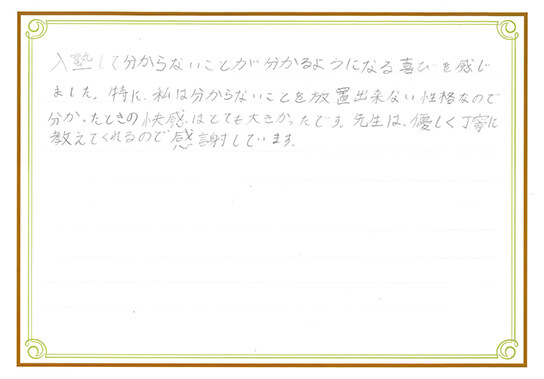 入塾して分からないことが分かるようになる喜びを感じ
ました。特に、私は分からないことを放置出来ない性格なので
分かったときの快感はとても大きかったです。先生は、優しく丁寧に
教えてくれるので感謝しています。